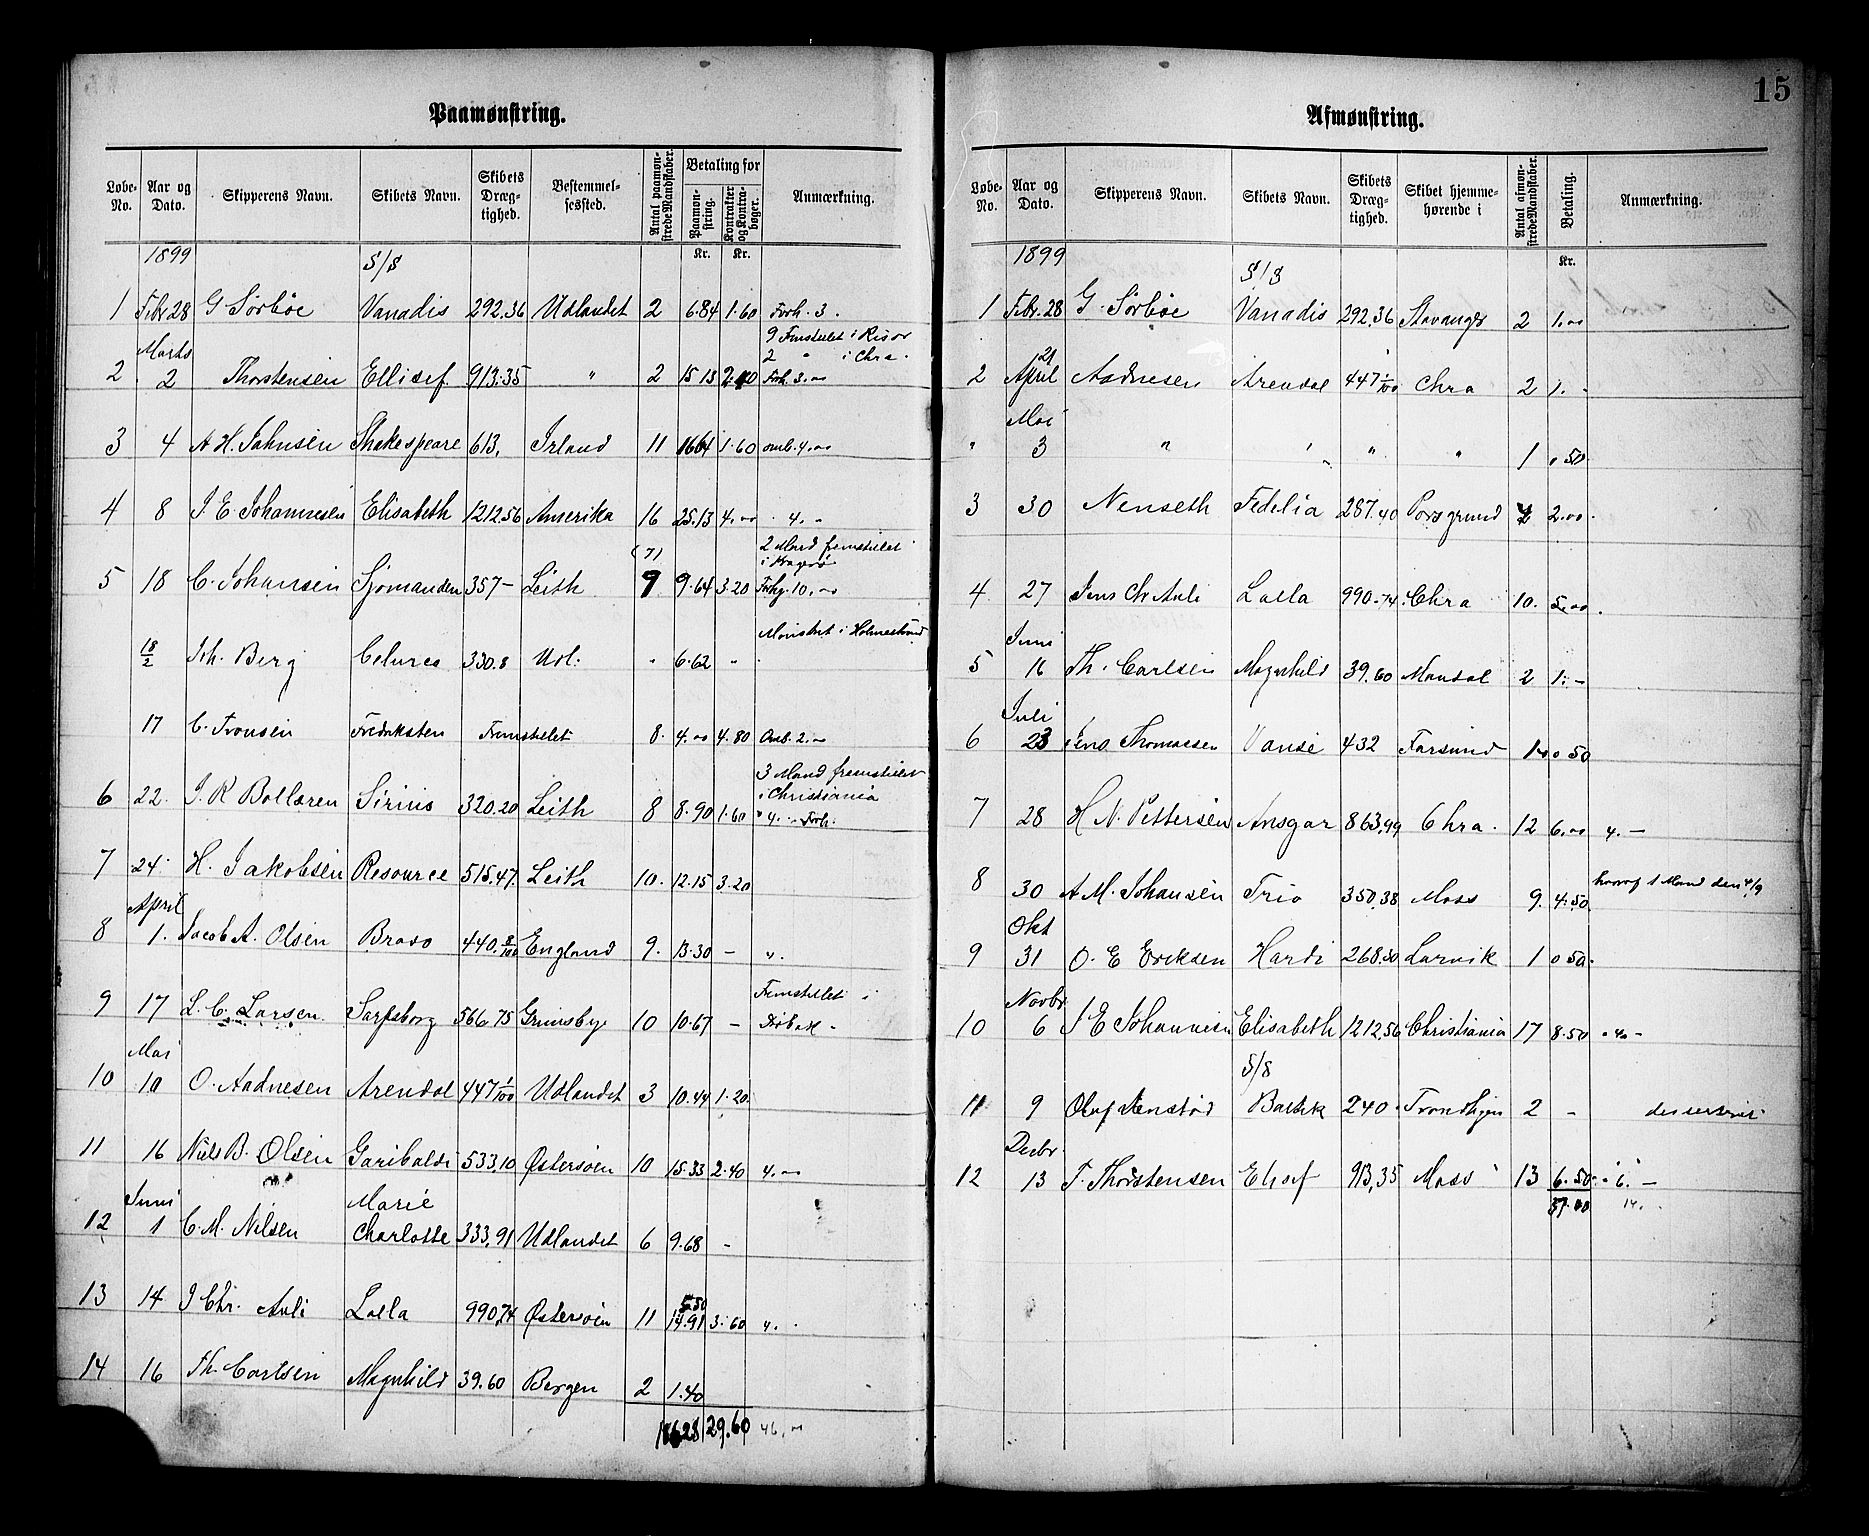 15
Paamønstring.
Løbe-No. Aar og Dato. Skipperens Navn. Skibets Navn. Skibets Dræg-tighed. Bestemmel-sessted. Antal paamøn-strede Mandskaber. Betaling for Paamøn-string. Kontrakter og Kontra-bøger. Anmærkning.
Kr. Kr.
1899 S/S
1 Febr. 28 G Sørbøe Vanadis 292.36 Udlandet 2 6.84 1.60 Forh. 3.
9 Fremstillet i Risør
Marts 2 " i Chra.
2 2 Thorstensen Ellisef 913.35 " 2 15 13 2.40 Forh. 3.00
3 4 A H. Johnsen Shakespeare 613, Irland 11 1664 1.60 omb. 4.00
4 8 J E Johannesen Elisabeth 1212.56 Amerika 16 25.13 4.00 " 4. "
(7) 2 Mand fremstillet
i Kragerø
5 18 C. Johansen Sjømanden 357 — Leith 9 9.64 3.20 Forhg. 10.00
Mønstret i Holmestrand
18/2 Joh. Berg 330.8 Udl. " 6.62 "
17 C. Tronsen Fredriksten Fremstillet 8. 4.00 4.80 Omb. 2.00
3 Mand fremstillet
i Christiania
6 22. J. R Bollæren Sirius 320.20 Leith 8 8.90 1.60 " 4. " Forh.
7 24. H. Jakobsen Resource 515.47. Leith 10. 12.15 3.20
April
8 1. Jacob A. Olsen Bravo 440.8/100 England 9. 13.30 — ".
Fremstillet i
9 17 L. C. Larsen Sarpsborg 566.75 Grimsby 10 10.67 — Drøbak
Mai
10 10 O. Aadnesen Arendal 447 1/100 Udlandet 3 10.44 1.20.
11 16 Niels B. Olsen Garibaldi 533,10 Østersøen 10 15.33 2.40 4. —
Juni Marie
12 1 C. M. Nilsen Charlotte 333,91 Udlandet 6 9.68 —
5.50
13 14 J Chr. Auli Lalla 990,74 Østersøen 11 14.91 3.60 4.
14 16 Th. Carlsen Magnhild 39.60 Bergen 2 1.40
29.60 46,00
Afmønstring.
Løbe-No. Aar og Dato. Skipperens Navn. Skibets Navn. Skibets Dræg-tighed. Skibet hjemme-hørende i Antal afmøn-strede Mandskaber. Betaling. Anmærkning.
Kr.
1899 S/S
1 Febr. 28 G. Sørbøe Vanadis 292,36 Stavanger 2 1.00
21
2 April Aadnesen Arendal 447 1/100 Chra 2 1. -
Mai
" 3 " " " " 1 0 50.
3 30 Nenseth Fedelia 287.40 Porsgrund 4 2.00.
4 27 Jens Chr Auli Lalla 990.74 Chra 10. 5.00.
Juni
5 16 Th. Carlsen Magnhild 39.60 Mandal 2 1. —
Juli
6 23 Jens Thomassen Vanse 432 Farsund 1 0 50
7 28 H N. Pettersen Ansgar 863,99 Chra. 12 6.00 4. —
8 30 A M. Johansen Trio 350,38 Moss 9. 4.50. hvoraf 1 Mand den 4/9
Okt
9 31 O. E Eriksen Hardi 268.30 Larvik 1 0 50.
Novbr.
10 6 J E Johannesen Elisabeth 1212,56 Christiania 17 8.50 " 4. —
S/S
11 9 Oluf Baltik 240 Trondhjem 2 -
Decbr.
12 13 T. Thorstensen Elisef 913,35 Moss 13 6.50 " 6. —
37.00 14.